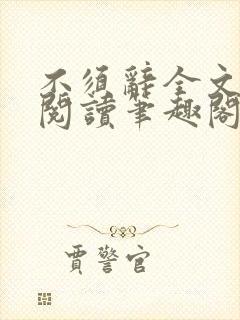 不須辭全文
閱讀筆趣閣
賈警官